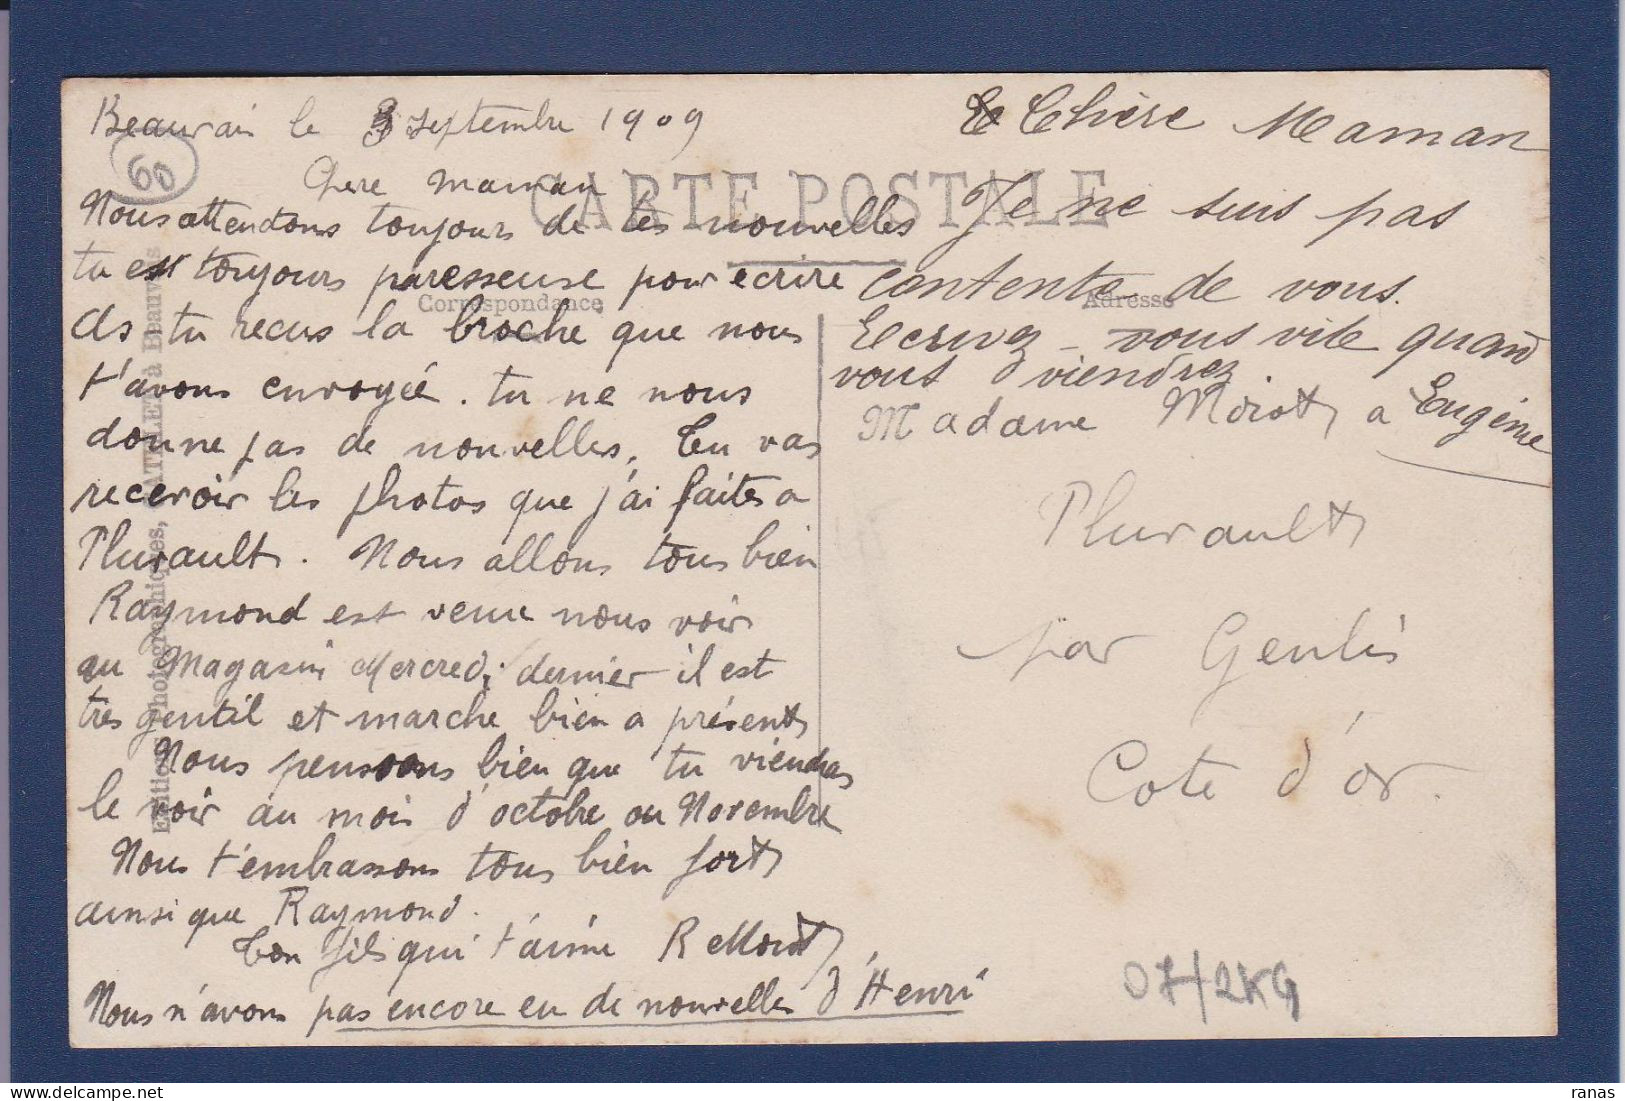 Beauvais le 3 septembre 1909
60
CARTE POSTALE
Correspondance
Adresse
Chere maman
Nous attendons toujours de tes nouvelles
tu est toujours paresseuse pour ecrire
As tu recus la broche que nous
t'avons envoyée. tu ne nous
donne pas de nouvelles, Tu vas
recevoir les photos que j'ai faites a
Plurault. Nous allons tous bien
Raymond est venu nous voir
au Magasin Mercredi dernier il est
très gentil et marche bien a présent
Nous pensons bien que tu viendras
le voir au mois d'octobre ou Novembre
Nous t'embrassons tous bien fort
ainsi que Raymond.
Ton fils qui t'aime R
Nous n'avons pas encore eu de nouvelles d'Henri
Chère Maman
Je ne suis pas
contente de vous.
Ecrivez-vous vite quand
vous viendrez.
Eugénie
Madame Mirot a
Plurault
par Genlis
Cote d'or.
07/2KG
Editions Photographiques, à Beauvais
ranas